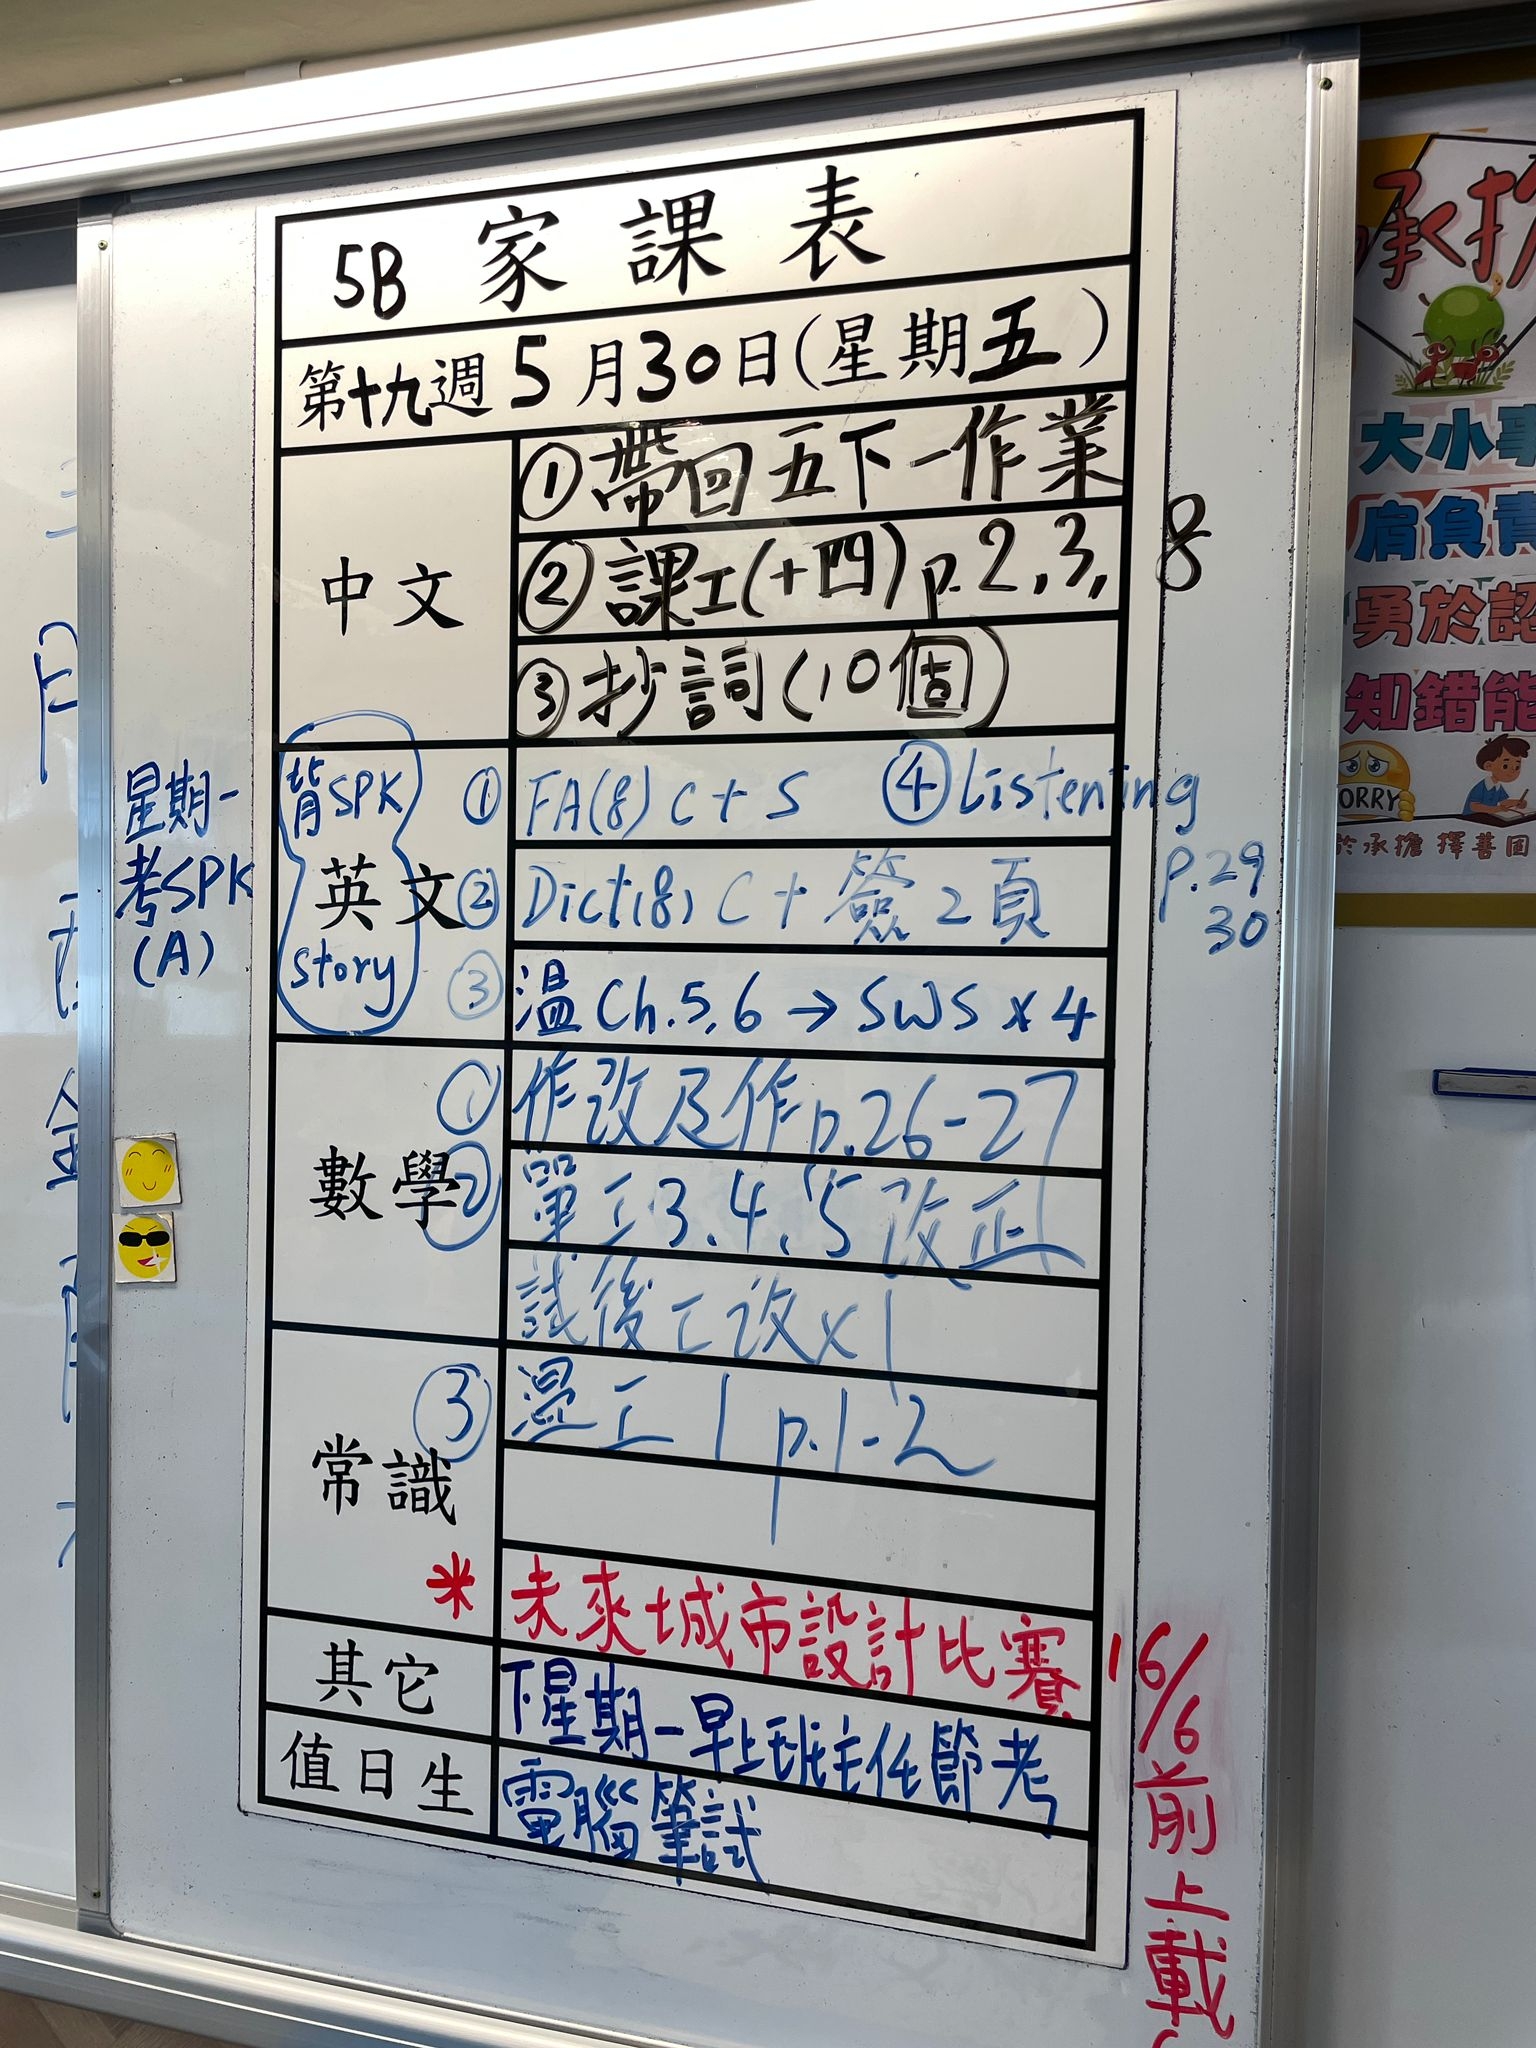 5B 家課表
第十九週 5月30日(星期五)
中文
①帶回五下一作業
②課工(十四)p.2,3,8
③抄詞(10個)
星期一
考SPK
(A)
背SPK
story
英文
① FA(8) C + S
④Listening
p.29
30
② Dict(8) C + 簽2頁
③ 溫Ch.5,6→SWS x 4
數學
① 作改及作p.26-27
② 單工3,4,5改正
試後工改x1
常識
③ 溫工1 p.1-2
* 未來城市設計比賽 16/6前上載
其它
下星期一早上班主任節考
值日生
電腦筆試
大小事
肩負責
勇於認
知錯能
SORRY
於承擔 擇善固